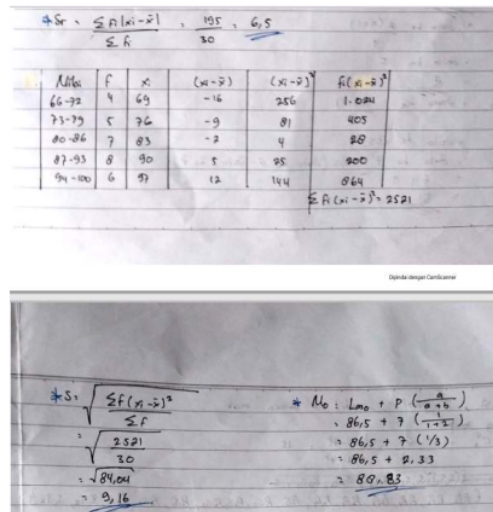 * Sr = Σ fi |xi - x̄| / Σ fi = 195 / 30 = 6,5
Nilai f x (xi - x̄) (xi - x̄)² fi (xi - x̄)²
66-72 4 69 -16 256 1.024
73-79 5 76 -9 81 405
80-86 7 83 -2 4 28
87-93 8 90 5 25 200
94-100 6 97 12 144 864
Σ fi (xi - x̄)² = 2521
Dipindai dengan CamScanner
* S = √ Σf (xi - x̄)² / Σf
= √ 2521 / 30
= √84,04
= 9,16
* Mo = Lmo + P (a / a + b)
= 86,5 + 7 (1 / 1 + 2)
= 86,5 + 7 (1/3)
= 86,5 + 2,33
= 88,83